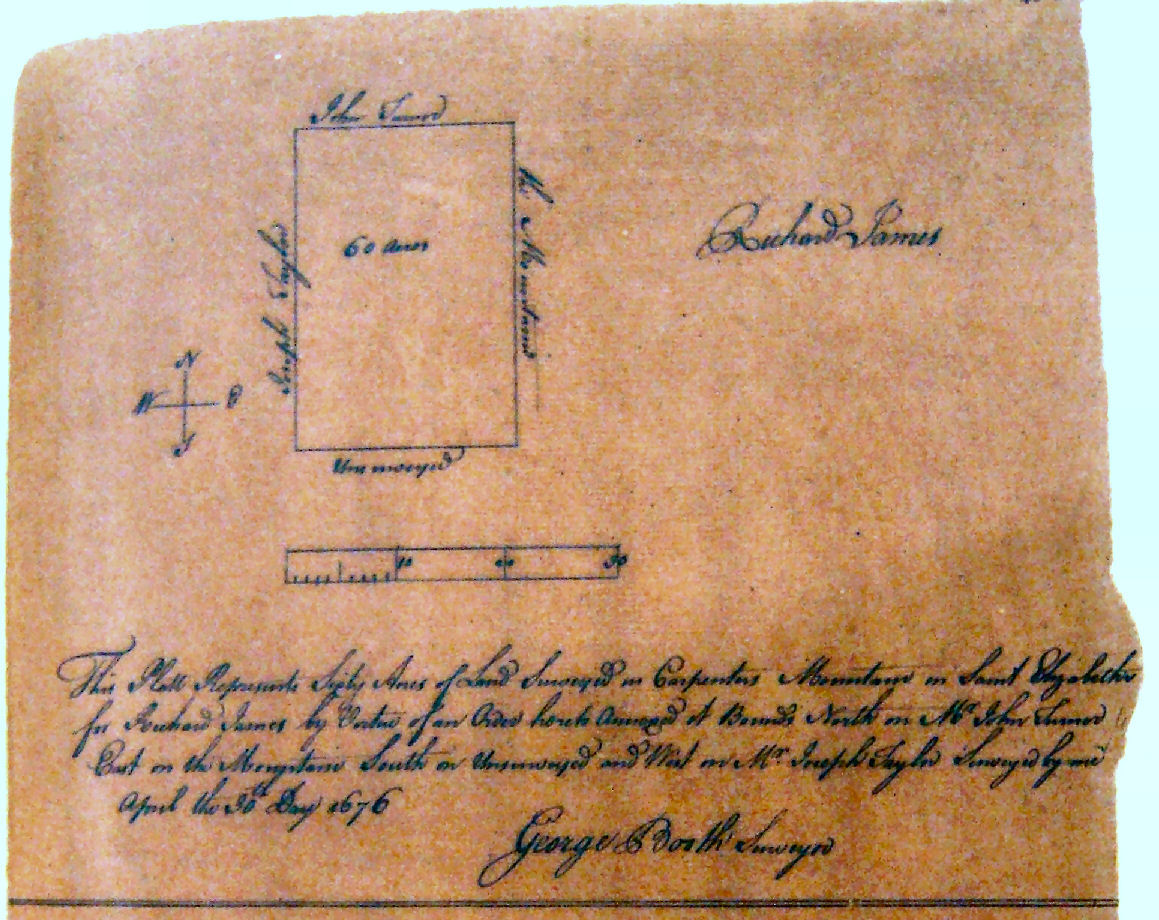 John Turnor
60 Acres
Joseph Taylor
the Mountand
Richard James
N
W
E
S
Unsurveyed
10
20
30
This Platt Represents Sixty Acres of Land Surveyed in Carpenters Mountains in Saint Elizabeths
for Richard James by Vertue of an Order hereto Annexed it Bounds North on Mr John Turnor
East on the Mountains South on Unsurveyed and West on Mr Joseph Taylor Surveyed by me
April the 30th Day 1676
George Booth Surveyor